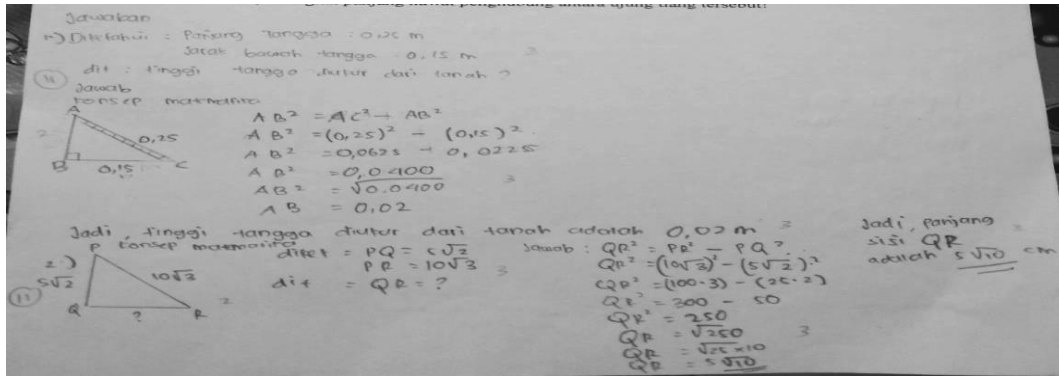 Jawaban
1.) Diketahui = Panjang tangga : 0,25 m
Jarak bawah tangga : 0,15 m
3
dit : tinggi tangga diukur dari tanah ?
11
Jawab
konsep matematika
A
B
C
0,25
0,15
2
AB² = AC² - AB²
AB² = (0,25)² - (0,15)²
AB² = 0,0625 - 0,0225
AB² = 0,0400
AB² = √0.0400
AB = 0,02
3
Jadi, tinggi tangga diukur dari tanah adalah 0,02 m 3
2.) konsep matematika
P
5√2
10√3
Q
?
R
11
2
diket = PQ = 5√2
PR = 10√3
3
dit = QR = ?
Jawab : QR² = PR² - PQ²
QR² = (10√3)² - (5√2)²
QR² = (100·3) - (25·2)
QR² = 300 - 50
QR² = 250
QR = √250
3
QR = √25×10
QR = 5√10
Jadi, panjang 3
sisi QR
adalah 5√10 cm